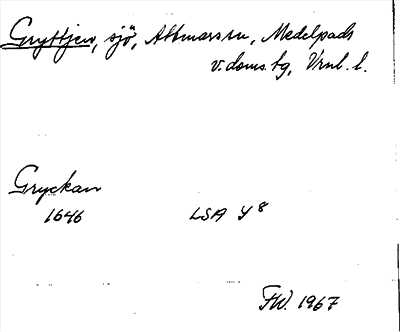 Gryttjen, sjö, Attmars sn, Medelpads
v. doms. tg, Vrnl. l.
Gryckan
1646 LSA Y 8
FW. 1967